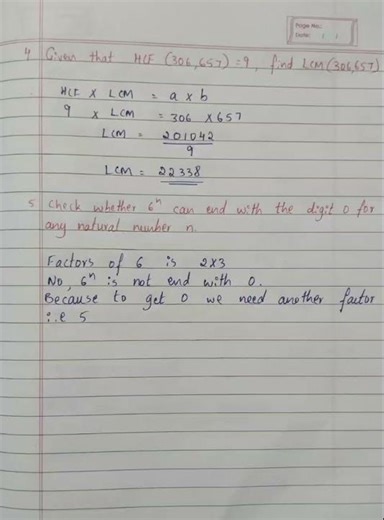 Page No.:
Date:
4 Given that HCF (306,657) = 9, find LCM (306,657)
HCF x LCM = a x b
9 x LCM = 306 x 657
LCM = 201042
9
LCM = 22338
5 Check whether 6ⁿ can end with the digit 0 for
any natural number n.
Factors of 6 is 2x3
No, 6ⁿ is not end with 0.
Because to get 0 we need another factor
i.e 5